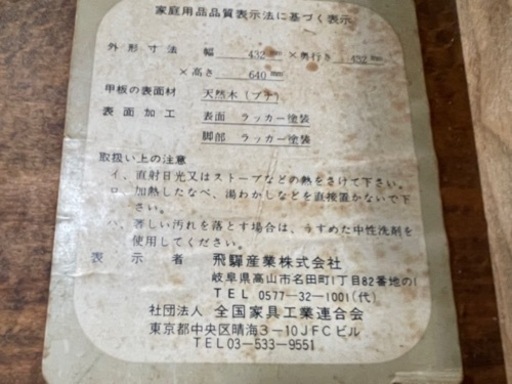 家庭用品品質表示法に基づく表示
外形寸法 幅 432mm×奥行き 432mm
×高さ 640mm
甲板の表面材 天然木(ブナ)
表面加工 表面 ラッカー塗装
脚部 ラッカー塗装
取扱い上の注意
イ、直射日光又はストーブなどの熱をさけて下さい。
ロ、加熱したなべ、湯わかしなどを直接置かないで下
さい。
ハ、著しい汚れを落とす場合は、うすめた中性洗剤を
使用してください。
表示者 飛驒産業株式会社
岐阜県高山市名田町1丁目82番地の1
TEL 0577-32-1001(代)
社団法人 全国家具工業連合会
東京都中央区晴海3-10JFCビル
TEL03-533-9551